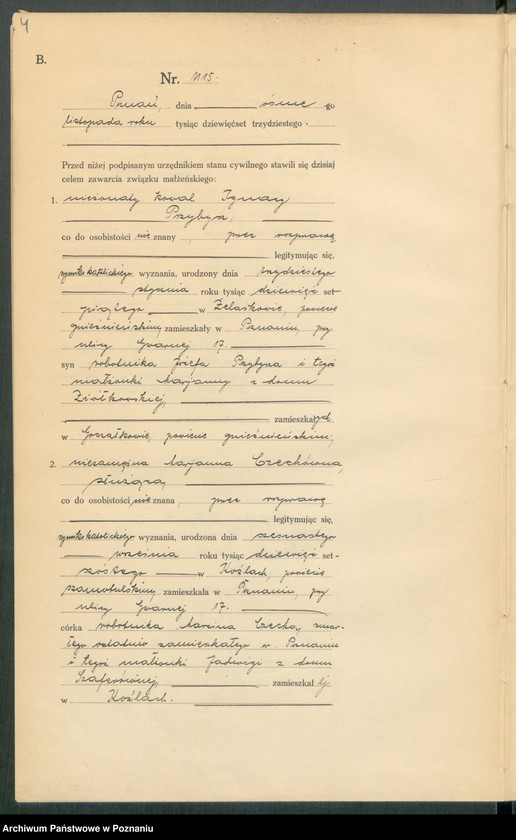 4
B.
Nr. 1115.
Poznań, dnia ósme go
listopada roku tysiąc dziewięćset trzydziestego.
Przed niżej podpisanym urzędnikiem stanu cywilnego stawili się dzisiaj
celem zawarcia związku małżeńskiego:
1. nieżonaty kowal Ignacy
Przybysz,
co do osobistości nie znany, przez rozprawę
legitymując się,
rzymsko katolickiego wyznania, urodzony dnia trzydziestego
stycznia roku tysiąc dziewięć set
piątego w Żelaskowie, powiecie
gnieźnieńskim, zamieszkały w Poznaniu, przy
ulicy Gwarnej 17.
syn robotnika Józefa Przybysza i tegoż
małżonki Marjanny z domu
Ziółkowskiej,
zamieszkałych
w Goczałkowie, powiecie gnieźnieńskim,
2. niezamężna Marjanna Czechówna,
służąca,
co do osobistości nie znana, przez rozprawę
legitymując się,
rzymsko katolickiego wyznania, urodzona dnia szesnastego
września roku tysiąc dziewięć set-
szóstego w Koźlach, powiecie
szamotulskim, zamieszkała w Poznaniu, przy
ulicy Gwarnej 17.
córka robotnika Marcina Czecha, zmar-
łego ostatnio zamieszkałego w Poznaniu
i tegoż małżonki Jadwigi z domu
zamieszkałej
w Koźlach.
Archiwum Państwowe w Poznaniu